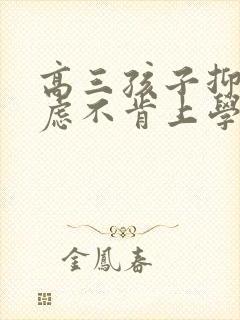 高三孩子抑
虑不肯上學
金鳳春